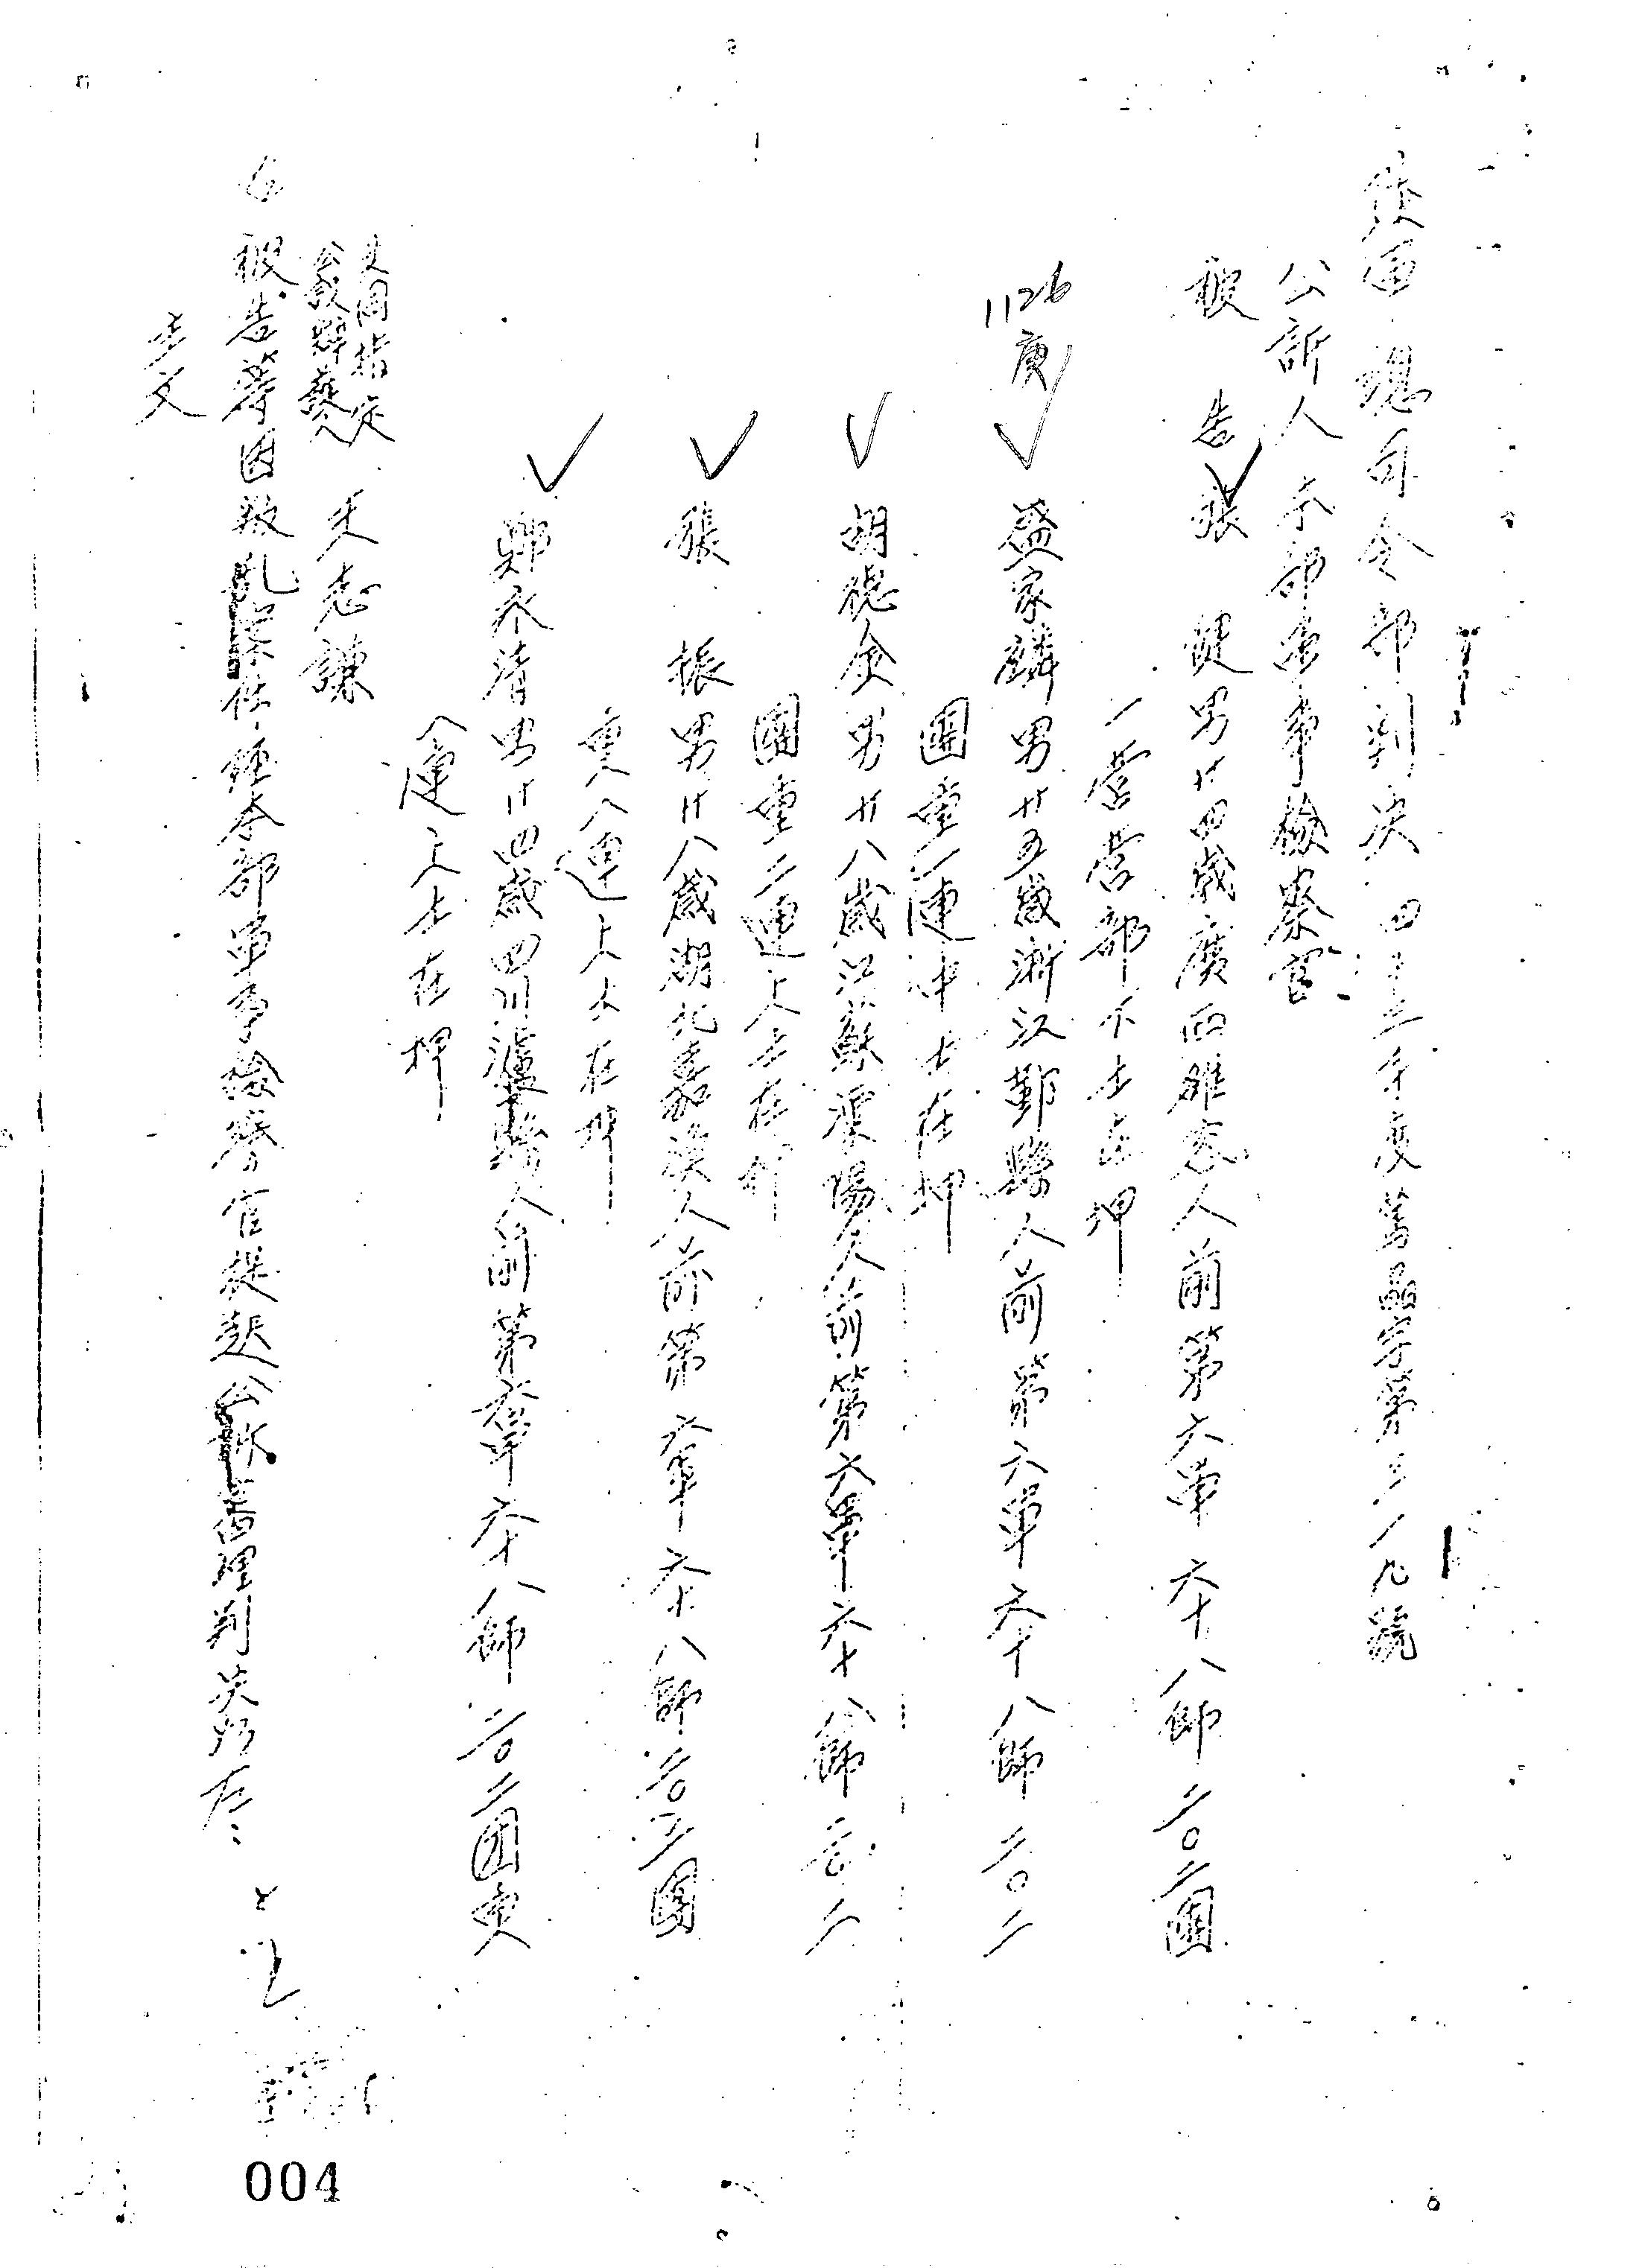 總司令部判決 四十三年度 字第三一九號
公訴人 本部軍事檢察官
被 告 張 健 男 廿四歲 廣西雒容人 前第六軍六十八師二〇二團
一營營部下士 在押
1126
庚
盛家麟 男 廿五歲 浙江鄞縣人 前第六軍六十八師二〇二
團 一連中士 在押
胡德金 男 廿八歲 江蘇溧陽人 前第六軍六十八師二〇二
團 二連上士 在押
張 振 男 廿八歲 湖北嘉漢人 前第六軍六十八師二〇二團
八連上士 在押
鄭永清 男 廿四歲 四川瀘縣人 前第六軍六十八師二〇二團
八連上士 在押
指定
公設辯護人 志謙
被告等因叛亂案件經本部軍事檢察官提起公訴 審理判決如左
主文
004